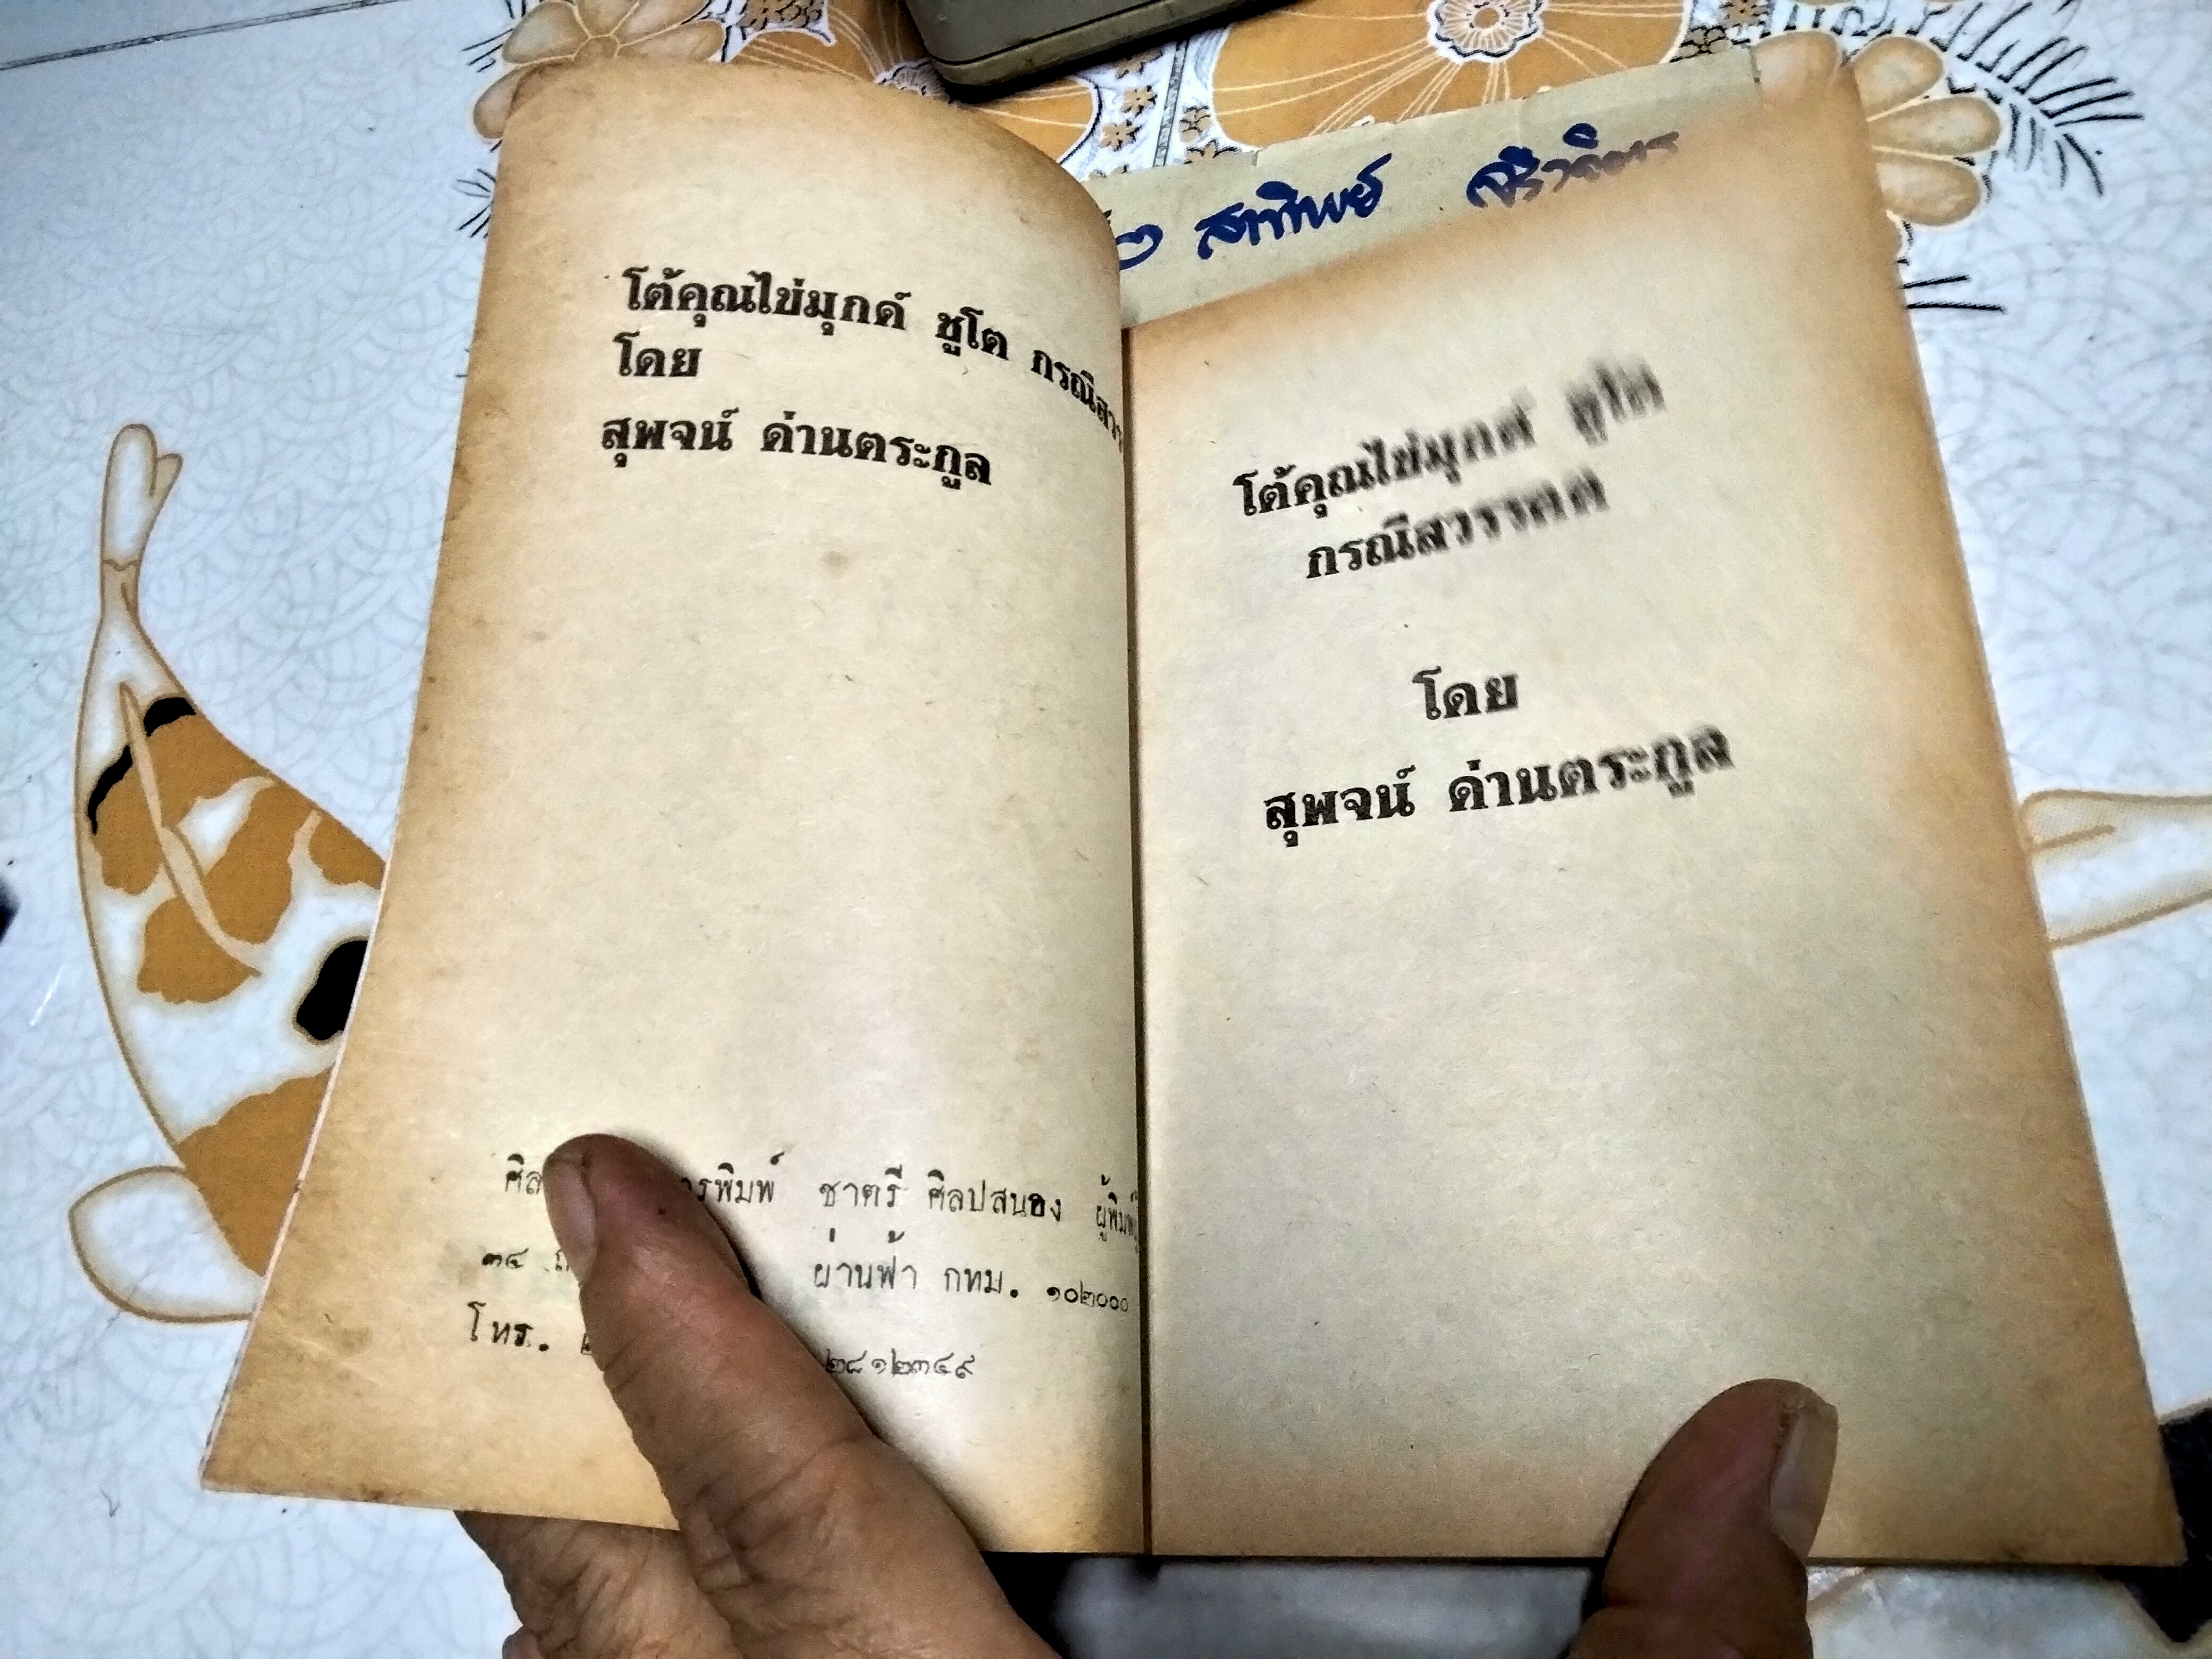 สาทิพย์
โต้คุณไข่มุกด์ ชูโต
โดย
สุพจน์ ด่านตระกูล
ชาตรี ศิลปสนอง
๓๔ ผ่านฟ้า กทม. ๑๐๒๐๐๐
โทร. ๒๘๑๒๓๔๙
โต้คุณไข่มุกด์ ชูโต
กรณีสวรรคต
โดย
สุพจน์ ด่านตระกูล